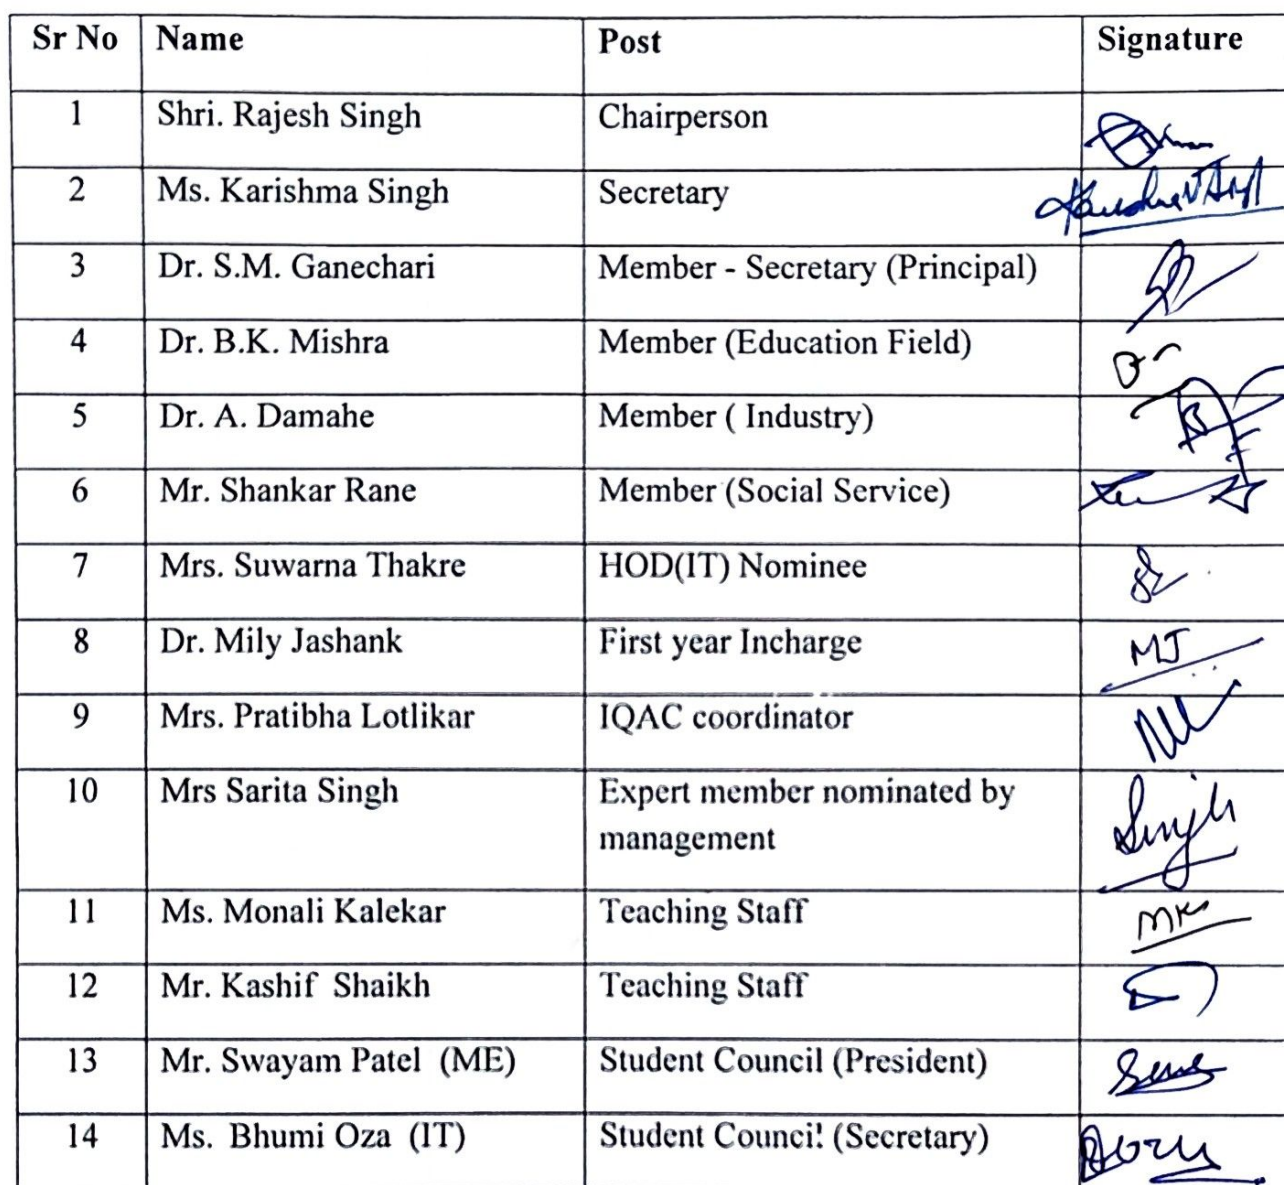 Sr No Name Post Signature
1 Shri. Rajesh Singh Chairperson
2 Ms. Karishma Singh Secretary
3 Dr. S.M. Ganechari Member - Secretary (Principal)
4 Dr. B.K. Mishra Member (Education Field)
5 Dr. A. Damahe Member ( Industry)
6 Mr. Shankar Rane Member (Social Service)
7 Mrs. Suwarna Thakre HOD(IT) Nominee
8 Dr. Mily Jashank First year Incharge MJ
9 Mrs. Pratibha Lotlikar IQAC coordinator
10 Mrs Sarita Singh Expert member nominated by Singh
management
11 Ms. Monali Kalekar Teaching Staff
12 Mr. Kashif Shaikh Teaching Staff
13 Mr. Swayam Patel (ME) Student Council (President)
14 Ms. Bhumi Oza (IT) Student Council (Secretary)